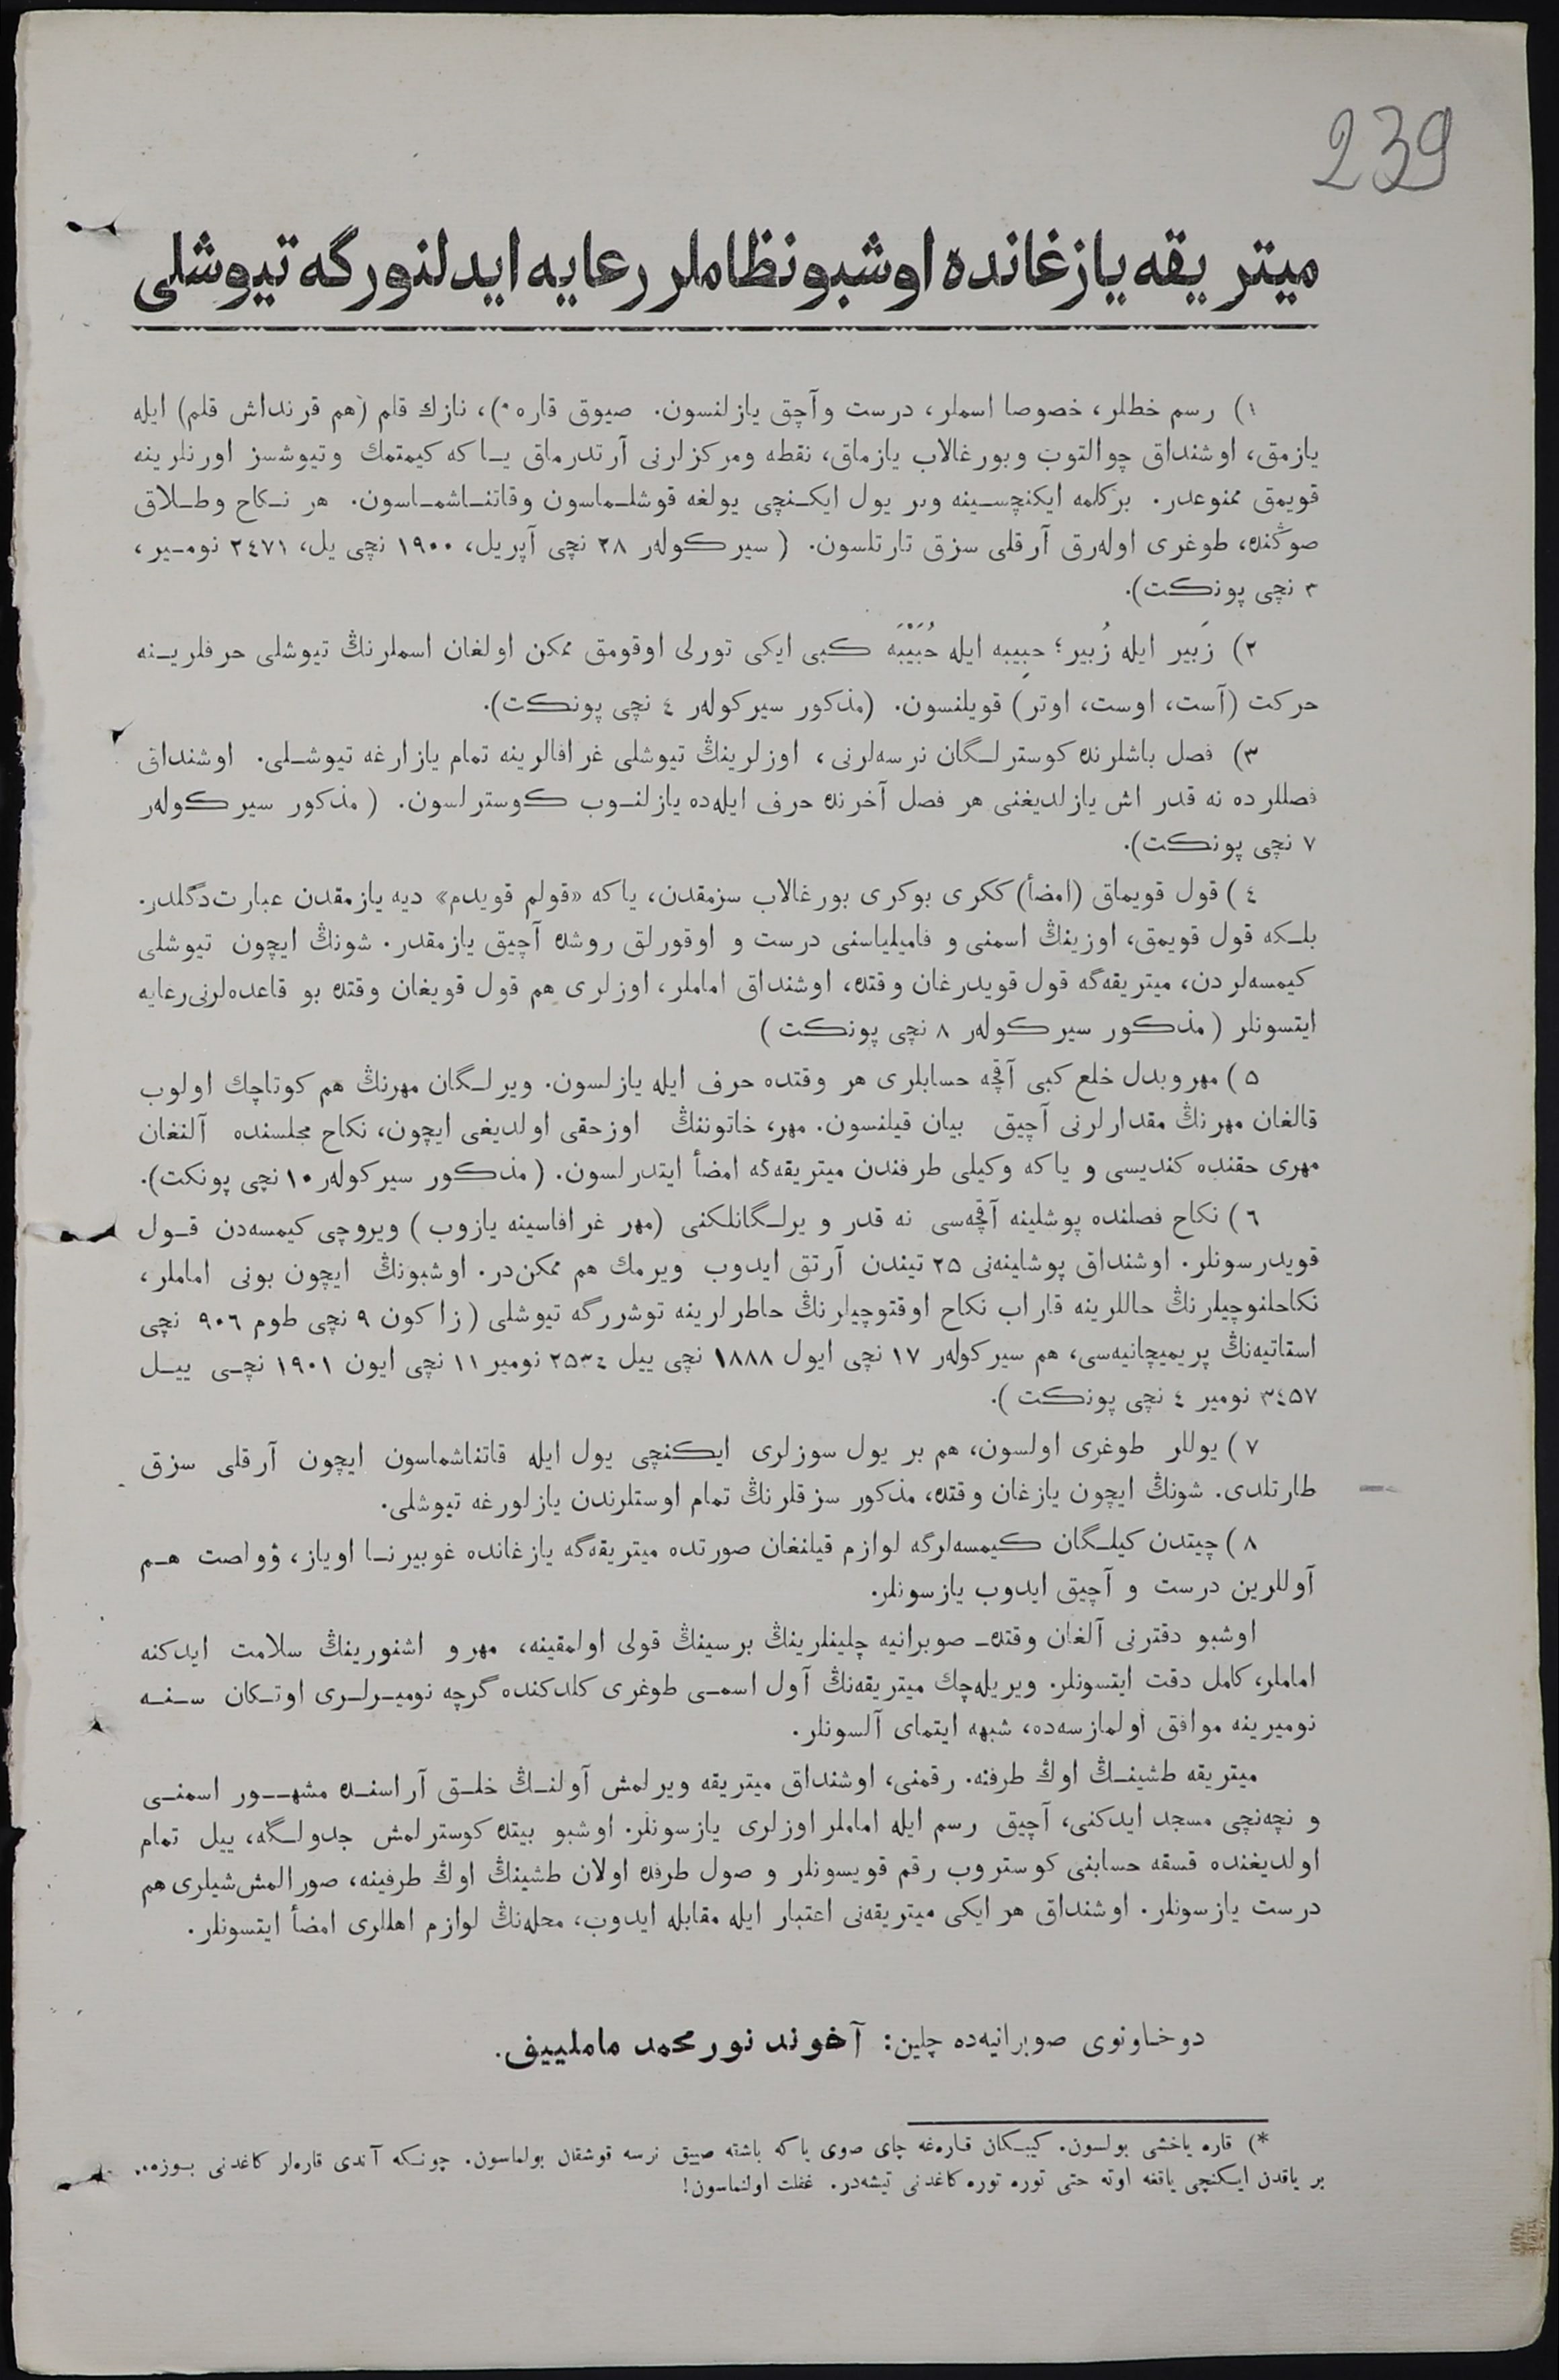 239
ميتريقه يازغانده اوشبو نظاملر رعايه ايدلنورگه تيوشلى
١) رسم خطلر، خصوصا اسملر، درست وآچق يازلنسون. صيوق قاره *)، نازك قلم (هم قرنداش قلم) ايله
يازمق، اوشنداق چوالتوب وبورغالاب يازماق، نقطه ومركزلرنى آرتدرماق يـاكه كيمتمك وتيوشسز اورنلرينه
قويمق ممنوعدر. بركلمه ايكنچسـينه وبر يول ايكـنچى يولغه قوشلـماسون وقاتنـاشمـاسون. هر نـكاح وطـلاق
صوڭنده، طوغرى اولەرق آرقلى سزق تارتلسون. (سيركولەر ٢٨ نچى آپريل، ١٩٠٠ نچى يل، ٢٤٧١ نومـير،
٣ نچى پونكت).
٢) زَبير ايله زُبير؛ حبِيبه ايله حُبَيْبَه كبى ايكى تورلى اوقومق ممكن اولغان اسملرنڭ تيوشلى حرفلريـنه
حركت (آست، اوست، اوتر) قويلنسون. (مذكور سيركولەر ٤ نچى پونكت).
٣) فصل باشلرنده كوسترلـگان نرسەلرنى، اوزلرينڭ تيوشلى غرافالرينه تمام يازارغه تيوشـلى. اوشنداق
فصللرده نه قدر اش يازلديغنى هر فصل آخرنده حرف ايلەده يازلنـوب كوسترلسون. (مذكور سيركولەر
٧ نچى پونكت).
٤) قول قويماق (امضأ) ككرى بوكرى بورغالاب سزمقدن، ياكه «قولم قويدم» ديه يازمقدن عبارت دگلدر.
بلـكه قول قويمق، اوزينڭ اسمنى و فاميلياسنى درست و اوقورلق روشده آچيق يازمقدر. شونڭ ايچون تيوشلى
كيمسەلردن، ميتريقەگه قول قويدرغان وقتده، اوشنداق اماملر، اوزلرى هم قول قويغان وقتده بو قاعدەلرنى رعايه
ايتسونلر (مذكور سيركولەر ٨ نچى پونكت)
٥) مهر وبدل خلع كبى آقچه حسابلرى هر وقتده حرف ايله يازلسون. ويرلـگان مهرنڭ هم كوتاچك اولوب
قالغان مهرنڭ مقدارلرنى آچيق بيان قيلنسون. مهر، خاتوننڭ اوزحقى اولديغى ايچون، نكاح مجلسنده آلنغان
مهرى حقنده كنديسى و ياكه وكيلى طرفندن ميتريقەگه امضأ ايتدرلسون. (مذكور سيركولەر ١٠ نچى پونكت).
٦) نكاح فصلنده پوشلينه آقچەسى نه قدر ويرلـگانلكنى (مهر غرافاسينه يازوب) ويروچى كيمسەدن قـول
قويدرسونلر. اوشنداق پوشلينەنى ٢٥ تيندن آرتق ايدوب ويرمك هم ممكن در. اوشبونڭ ايچون بونى اماملر،
نكاحلنوچيلرنڭ حاللرينه قاراب نكاح اوقتوچيلرنڭ خاطرلرينه توشررگه تيوشلى (زاكون ٩ نچى طوم ٩٠٦ نچى
استاتيەنڭ پريميچانيەسى، هم سيركولەر ١٧ نچى ايول ١٨٨٨ نچى ييل ٢٥٣٤ نومير ١١ نچى ايون ١٩٠١ نچـى ييـل
٣٤٥٧ نومير ٤ نچى پونكت).
٧) يوللر طوغرى اولسون، هم بر يول سوزلرى ايكنچى يول ايله قاتناشماسون ايچون آرقلى سزق
طارتلدى. شونڭ ايچون يازغان وقتده، مذكور سزقلرنڭ تمام اوستلرندن يازلورغه تيوشلى.
٨) چيتدن كيلـگان كيمسەلرگه لوازم قيلنغان صورتده ميتريقەگه يازغانده غوبيرنـا اوياز، ؤولصت هـم
آوللرين درست و آچيق ايدوب يازسونلر.
اوشبو دفترنى آلغان وقتده صوبرانيه چلينلرينڭ برسينڭ قولى اولمقينه، مهر و اشنورينڭ سلامت ايدكنه
اماملر، كامل دقت ايتسونلر. ويريلەچك ميتريقەنڭ آول اسمـى طوغرى كلدكنده گرچه نوميـرلـرى اوتـكان سـنـه
نوميرينه موافق اولمازسەده، شبهه ايتماى آلسونلر.
ميتريقه طشينـڭ اوڭ طرفنه. رقمنى، اوشنداق ميتريقه ويرلمش آولنـڭ خلـق آراسنـده مشهـور اسمنـى
و نچەنچى مسجد ايدكنى، آچيق رسم ايله اماملر اوزلرى يازسونلر. اوشبو بيتده كوسترلمش جدولـگه، ييل تمام
اولديغنده قسقه حسابنى كوستروب رقم قويسونلر و صول طرفده اولان طشينڭ اوڭ طرفينه، صورالمش شيلرى هم
درست يازسونلر. اوشنداق هر ايكى ميتريقەنى اعتبار ايله مقابله ايدوب، محلەنڭ لوازم اهللرى امضأ ايتسونلر.
دوخاونوى صوبرانيەده چلين: آخوند نورمحمد مامليیف.
*) قاره ياخشى بولسون. كيبـكان قارەغه چاى صوى ياكه باشقه صييق نرسه قوشقان بولماسون. چونـكه آندى قارەلر كاغدنى بـوزه...
بر ياقدن ايـكنچى ياقغه اوته حتى توره توره كاغدنى تيشەدر. غفلت اولنماسون!